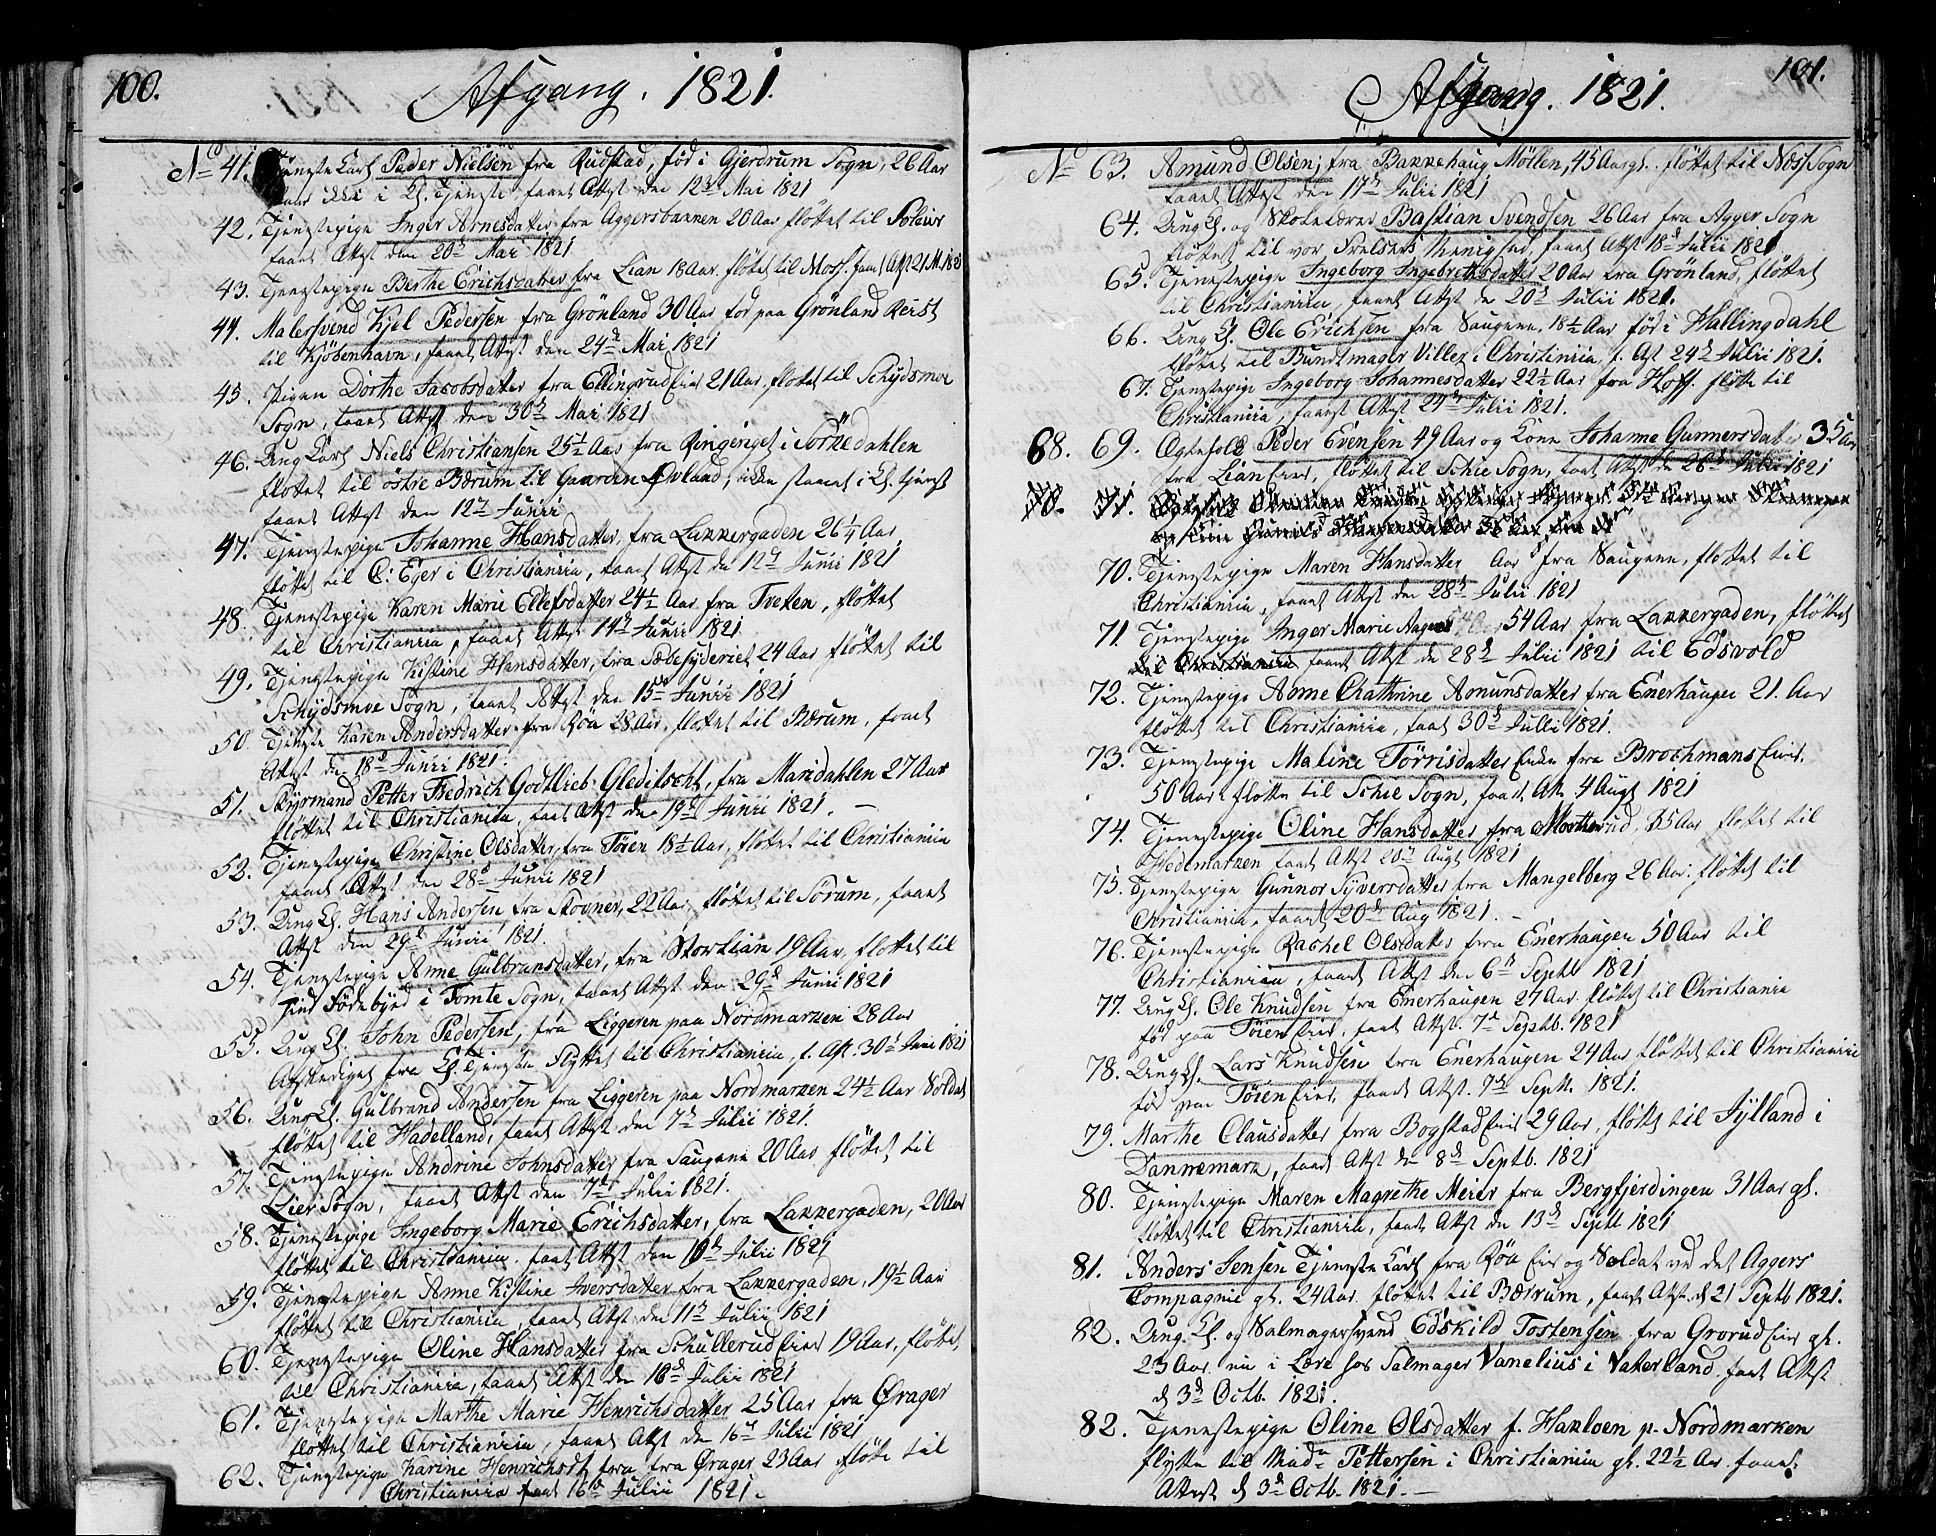 100.
Afgang. 1821.
No 41. Tjenestekarl Peder Nielsen fra Rudstad, fød i Gjerdrum Sogn, 26 Aar
ikke i K. Tjeneste, faaet Attest den 12te Mai 1821
42. Tjenestepige Inger Arnesdatter fra Aggersbakken 20 Aar flöttet til Soløer
faaet Attest den 20de Mai 1821
43. Tjenestepigen Berthe Erichsdatter fra Lian 18 Aar. flöttet til Moss. faaet Attst 21 M. 1821
44. Malersvend Kjel Pedersen fra Grönland 30 Aar fød paa Grönland Reist
til Kjöbenhavn, faaet Attst den 24de Mai 1821
45. Pigen Dorthe Jacobsdatter fra Ellingrud Eier 21 Aar. flöttet til Schydsmoe
Sogn, faaet Attst den 30te Mai 1821
46. Ung Karl Niels Christiansen 25½ Aar fra Ringeriget i Sörkedahlen
flöttet til östre Bærum til Gaarden Øvland, ikke staaet i K. tjenst
faaet Attst den 12te Junii
47. Tjenstepige Johanne Hansdatter, fra Lakkergaden 26¼ Aar,
flöttet til C: Eger i Christiania, faaet Attst den 12te Junii 1821
48. Tjenestepige Karen Marie Ellefsdatter 24½ Aar fra Tveten, flöttet
til Christiania, faaet Attst 14de Junii 1821
49. Tjenstepigen Kistine Hansdatter, fra Sæbesyderiet 24 Aar flöttet til
Schydsmoe Sogn, faaet Attst den 15de Junii 1821
50. Tjenste Karen Andersdatter fra Röa 28 Aar, flöttet til Bærum, faaet
Attest de 18de Junii 1821.
51. Styrmand Petter Fredrich Godtlieb Gleditscht, fra Maridahlen 27 Aar
flöttet til Christiania, faaet Attst den 19de Junii 1821.
52. Tjenstepigen Christine Olsdatter, fra Töien 18½ Aar, flöttet til Christiania
faaet Attst den 28de Junii 1821
53. Ung K. Hans Andersen fra Stovner, 22 Aar, flöttet til Sørum, faaet
Attst den 29de Junii 1821.
54. Tjenestepige Anne Gulbransdatter, fra Stortian 19 Aar, flöttet til
sind Födebyed i Tomte Sogn, faaet Attst den 29de Junii 1821
55. Ung K. John Pedersen, fra Liggeren paa Nordmarken 28 Aar
Afskediget fra K. Tjeneste flyttet til Christiania, f. Att. 30te Juni 1821
56. Ung K. Gulbrand Andersen fra Liggeren paa Nordmarken 24½ Aar Soldat
flöttet til Hadelland, faaet Attst den 7de Julii 1821.
57. Tjenstepige Andrine Johnsdatter fra Saugene 20 Aar flöttet til
Lier Sogn, faaet Attst den 7de Julii 1821.
58. Tjenestepige Ingeborg Marie Erichsdatter, fra Lakkergaden, 20 Aar
flöttet til Christiania, faaet Attst den 10de Julii 1821
59. Tjenestepige Anne Kistine Iversdatter fra Lakkergaden, 19½ Aar
flöttet til Christiania, faaet Attst den 11te Julii 1821
60. Tjenstepige Oline Hansdatter fra Schullerud Eier 19 Aar, flöttet
til Christiania, faaet Attst den 16de Julii 1821
61. Tjenestepige Marthe Marie Henrichsdatter 25 Aar fra Ørager
flöttet til Christiania, faaet Attst den 16de Julii 1821
62. Tjenstepige Karine Henrichsdt fra fra Ørager 23 Aar flötte til
Christiania faaet 16de Julii 1821.
101.
Afgang. 1821.
No 63. Amund Olsen, fra Bakkehaug Möllen, 45 Aar gl. flöttet til Næs Sogn
faaet Attst den 17de Julii 1821
64. Ung K. og Skolelærer Bastian Svendsen 26 Aar fra Agger Sogn
flöttet til vor Frelsers Menighed, faaet Attst 18de Julii 1821
65. Tjenstepige Ingeborg Ingebretsdatter 20 Aar fra Grönland, flöttet
til Christiania, faaet Attst de 20de Julii 1821.
66. Ung K. Ole Erichsen fra Saugene, 18½ Aar föd i Hallingdahl
flöttet til Bundtmager Viller i Christiania, f. Att 24de Julii 1821.
67. Tjenstepige Ingeborg Johannesdatter 22½ Aar fra Hoff. flötte til
Christiania, faaet Attst 24de Julii 1821.
68. 69. Ægtefolk Peder Evensen 49 Aar og Kone Johanne Gunnersdatter 35 Aar
fra Lian Eier, flöttet til Schie Sogn, faaet Attst de 26de Julii 1821
70. 71.
70. Tjenstepige Maren Hansdatter Aar fra Saugene, flöttet til
Christiania, faaet Attst den 28de Julii 1821
71. Tjenstepige Inger Marie 54 Aar fra Lakkergaden, flöttet
til Christiania faaet Attst de 28de Julii 1821 til Edsvold
72. Tjenstepige Anne Chathrine Amunsdatter fra Enerhaugen 21. Aar
flöttet til Christiania, faaet 30te Julii 1821.
73. Tjenstepige Maline Törrisdatter Enke fra Brochmans Eier.
50 Aar flötte til Schie Sogn, faaet Att. 4 Augt 1821
74. Tjenstepige Oline Hansdatter fra Morterud, 35 Aar flöttet til
Hedemarken faaet Attst 20de Augt 1821
75. Tjenstepige Gunnor Syversdatter fra Mangelberg 26 Aar. flöttet til
Christiania, faaet 20de Aug 1821.
76. Tjenstepige Rachel Olsdatter fra Enerhaugen 50 Aar til
Christiania, faaet Attst den 6te Septb 1821
77. Ung K. Ole Knudsen fra Enerhaugen 27 Aar flöttet til Christiania
föd paa Töien Eier, faaet Attst. 7de Septb. 1821
78. Ung K. Lars Knudsen fra Enerhaugen 24 Aar flöttet til Christiania
föd paa Töien Eier, faaet Attst. 7de Septb. 1821.
79. Marthe Clausdatter fra Bogstad Eier 29 Aar, flöttet til Jylland i
Dannemark, faaet Attst de 8de Septb. 1821
80. Tjenstepige Maren Magrethe Meier fra Bergfjerdingen 31 Aar gl.
flöttet til Christiania, faaet Attst de 13de Septb 1821
81. Anders Jensen Tjenstekarl fra Röa Eier og Soldat ved det Aggers
Compagnie gl. 24 Aar. flöttet til Bærum, faaet Attst. d 21 Septb 1821.
82. Ung. K. og Salmagersvend Edskild Tostensen fra Grorud Eier gl.
23 Aar nu i Lære hos Salmager Vanelius i Vaterland faaet Attst
d 3de Octb. 1821.
82. Tjenestepige Oline Olsdatter f. Hakloen p. Nordmarken
flytte til Mad. Pettersen i Christiania gl. 22½ Aar. faaet
Attest d 3de Octb. 1821.